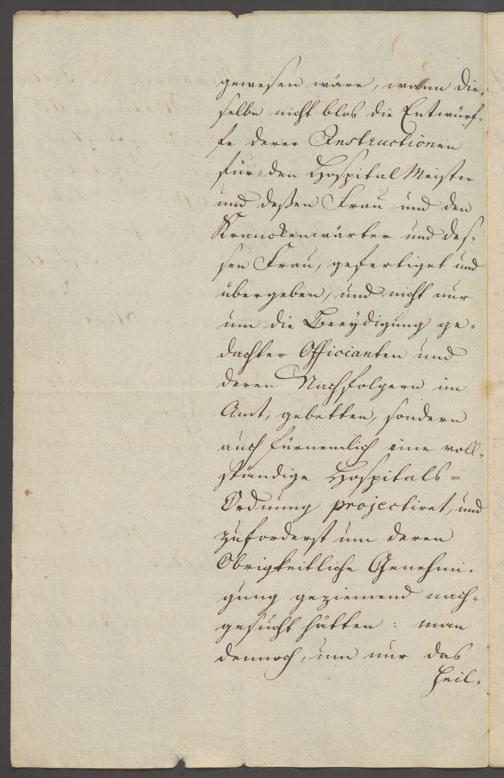 gewesen wäre, wann die-
selbe nicht blos die Entwürf-
fe derer Instructionen
für den Hospital Meister
und deßen Frau und den
Kranckenwärter und des-
sen Frau, gefertiget und
übergeben, und nicht nur
um die Beeydigung ge-
dachter Officianten und
deren Nachfolgern im
Amt, gebetten, sondern
auch fürnemlich eine voll-
ständige Hospitals-
Ordnung projectiret, und
zuforderst um deren
Obrigkeitliche Genehmi-
gung geziemend nach-
gesucht hätten: man
dennoch, um nur das
Heil-